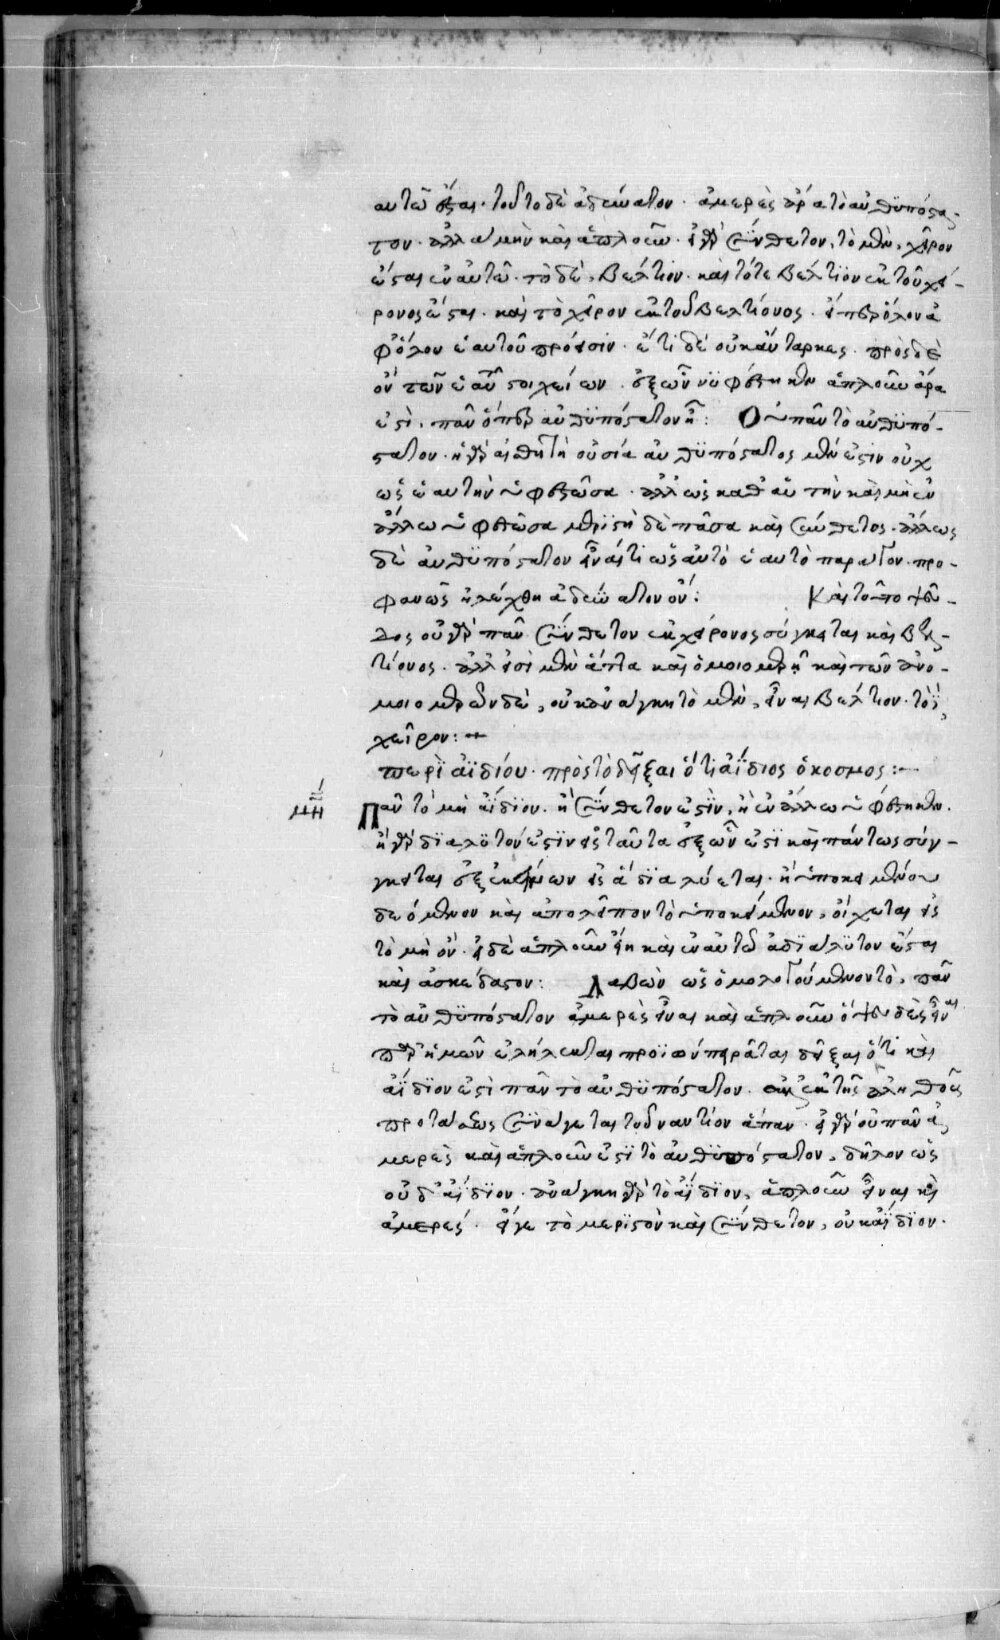 αυτῶ ἔσται· τοῦτο δὲ ἀδύνατον· ἀμερὲς ἄρα τὸ αὐθϋπόστα-
τον· ἀλλὰ μὴν καὶ ἁπλοῦν· εἰ γὰρ σύνθετον, τὸ μὲν, χεῖρον
ἔσται ἐν αὐτῶ· τὸ δὲ, βέλτιον· καὶ τότε βέλτϊον ἐκ τοῦ χεί-
ρονος ἔσται· καὶ τὸ χεῖρον ἐκ τοῦ βελτίονος· εἴπερ ὅλον ἀ
φ' ὅλου ἑαυτοῦ πρόεισιν· ἔτι δὲ οὐκ αὔταρκες· πρὸσδεὲ
ὂν τῶν ἑαυτοῦ στοιχείων· ἐξ ὧν ὑφέστηκεν ἁπλοῦν ἄρα
ἐστὶ, πᾶν ὅπερ αὐθϋπόστατον ἦ: Οὐ πᾶν τὸ αὐθϋπό-
στατον· ἡ γὰρ αἰσθητὴ οὐσία αὐθϋπόστατος μέν ἐστιν οὐχ
ὡς ἑαυτὴν ὑφιστῶσα· ἀλλ' ὡς καθ' αὑτὴν καὶ μὴ ἐν
ἄλλω ὑφεστῶσα μεριστὴ δὲ πᾶσα καὶ σύνθετος· ἄλλως
δὲ αὐθϋπόστατον εἶναί τι ὡς αὐτὸ ἑαυτὸ παράγον· προ-
φανῶς ἠλέγχθη ἀδύνατον ὄν: Καὶ τοῦτο ψεῦ-
δος οὐ γὰρ πᾶν σύνθετον ἐκ χείρονος σύγκειται καὶ βελ-
τίονος· ἀλλ' εἰσὶ μὲν ἅττα καὶ ὁμοιομερῆ καὶ τῶν ἀνο-
μοιομερῶν δὲ, οὐκ ἀνάγκη τὸ μὲν, εἶναι βέλτιον· τὸ δὲ,
χεῖρον:
περὶ αἰδίου· πρὸς τὸ δεῖξαι ὅτι ἀΐδιος ὁ κόσμος:
μη Πᾶν τὸ μὴ ἀΐδϊον· ἢ σύνθετον ἐστὶν, ἢ ἐν ἄλλω ὑφέστηκεν·
ἢ γὰρ διαλϋτόν ἐστϊν εἰς ταῦτα ἐξ ὧν ἐστι καὶ πάντως σύγ-
κειται ἐξ ἐκείνων εἰς ἃ διαλύεται· ἢ ὑποκειμένου
δεόμενον καὶ ἀπολεῖπον τὸ ὑποκείμενον, οἴχεται εἰς
τὸ μὴ ὄν· εἰ δὲ ἁπλοῦν εἴη καὶ ἐν αὑτῶ ἀδϊάλϋτον ἔσται
καὶ ἀσκέδαστον: Λαβὼν ὡς ὁμολογούμενον τὸ, πᾶν
τὸ αὐθϋπόστατον ἀμερὲς εἶναι καὶ ἁπλοῦν ὃ ψευδὲς εἶναι
παρ' ἡμῶν ἐλήλεγκται προϊὼν πειρᾶται δεῖξαι ὅτι καὶ
ἀΐδϊον ἐστὶ πᾶν τὸ αὐθϋπόστατον· ἐκ τῆς ἀληθοῦς
προτάσεως συνάγεται τοὐναντίον ἅπαν· εἰ γὰρ οὐ πᾶν ἀ-
μερὲς καὶ ἁπλοῦν ἐστϊ τὸ αὐθϋπόστατον, δῆλον ὡς
οὐδ' ἀΐδϊον· ἀνάγκη γὰρ τὸ ἀΐδϊον, ἁπλοῦν εἶναι καὶ
ἀμερές· εἴγε τὸ μερϊστὸν καὶ σύνθετον, οὐκ ἀΐδϊον·